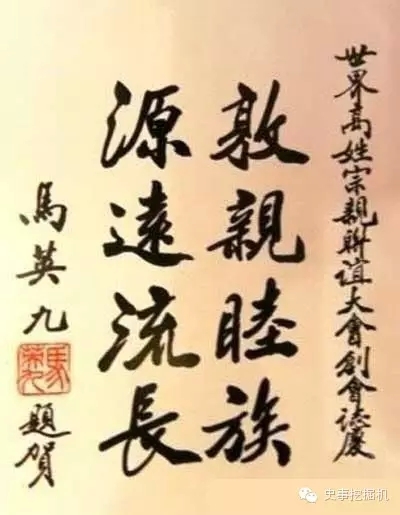 世界高姓宗親聯誼大會創會誌慶
敦親睦族
源遠流長
馬英九
馬英九
題賀
史事挖掘机